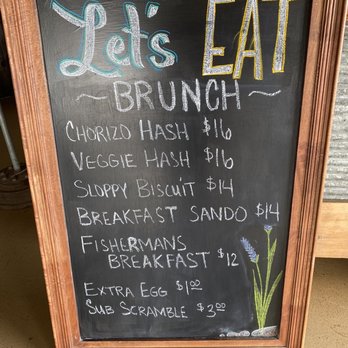 Let's EAT
~ BRUNCH ~
CHORIZO HASH $16
VEGGIE HASH $16
SLOPPY BISCUIT $14
BREAKFAST SANDO $14
FISHERMANS
BREAKFAST $12
EXTRA EGG $1.00
SUB SCRAMBLE $3.00